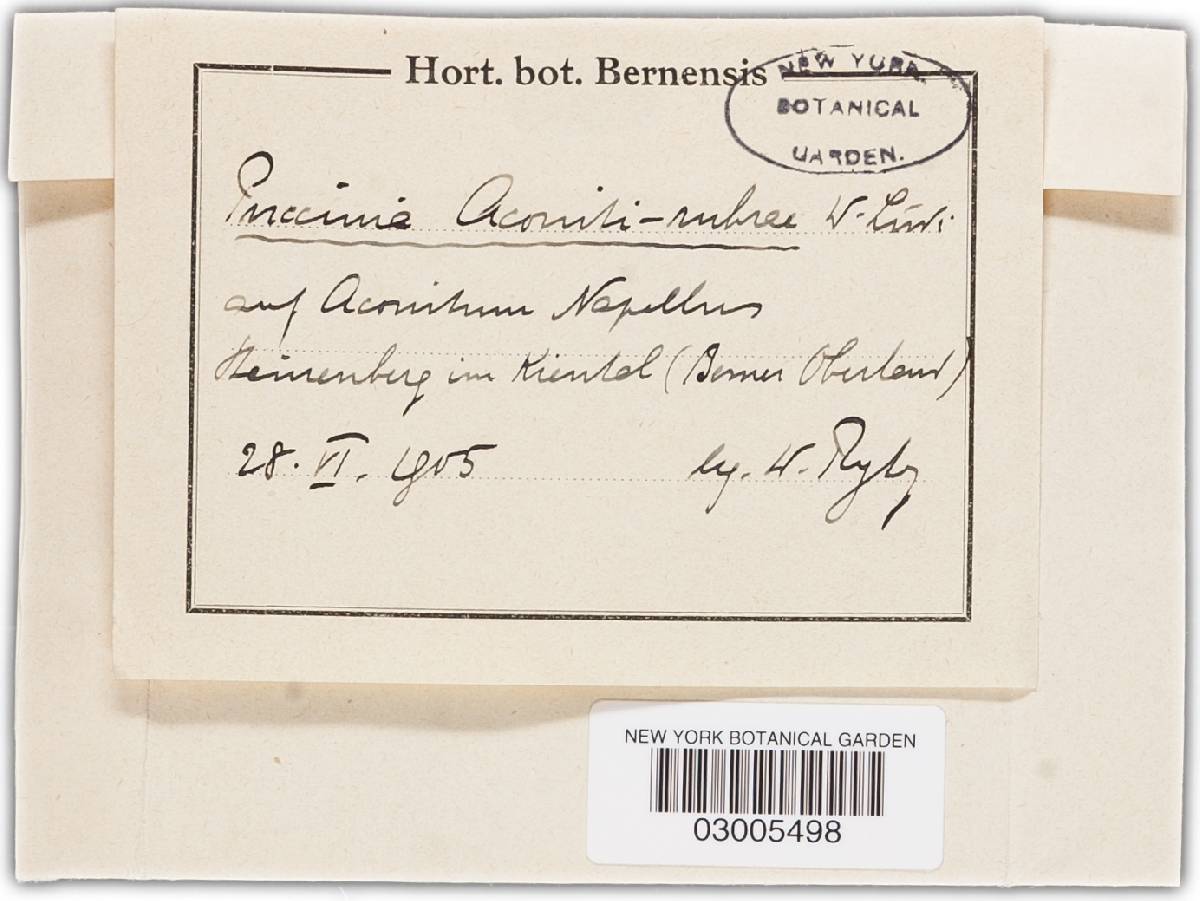 Hort. bot. Bernensis
NEW YORK
BOTANICAL
GARDEN.
Puccinia Aconiti-rubrae W. Lüdi
auf Aconitum Napellus
im Kiental (Berner Oberland)
28. VI. 1905 leg. W. Ryb
NEW YORK BOTANICAL GARDEN
03005498